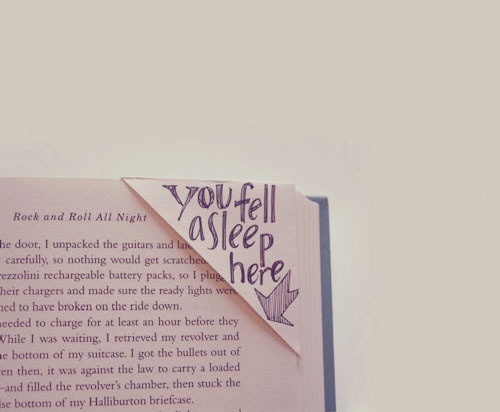 you fell
asleep
here
Rock and Roll All Night
he door, I unpacked the guitars and
carefully, so nothing would get scratched
rezzolini rechargeable battery packs, so I
heir chargers and made sure the ready lights were
ned to have broken on the ride down.
needed to charge for at least an hour before they
While I was waiting, I retrieved my revolver and
e bottom of my suitcase. I got the bullets out of
en then, it was against the law to carry a loaded
—and filled the revolver's chamber, then stuck the
lse bottom of my Halliburton briefcase.